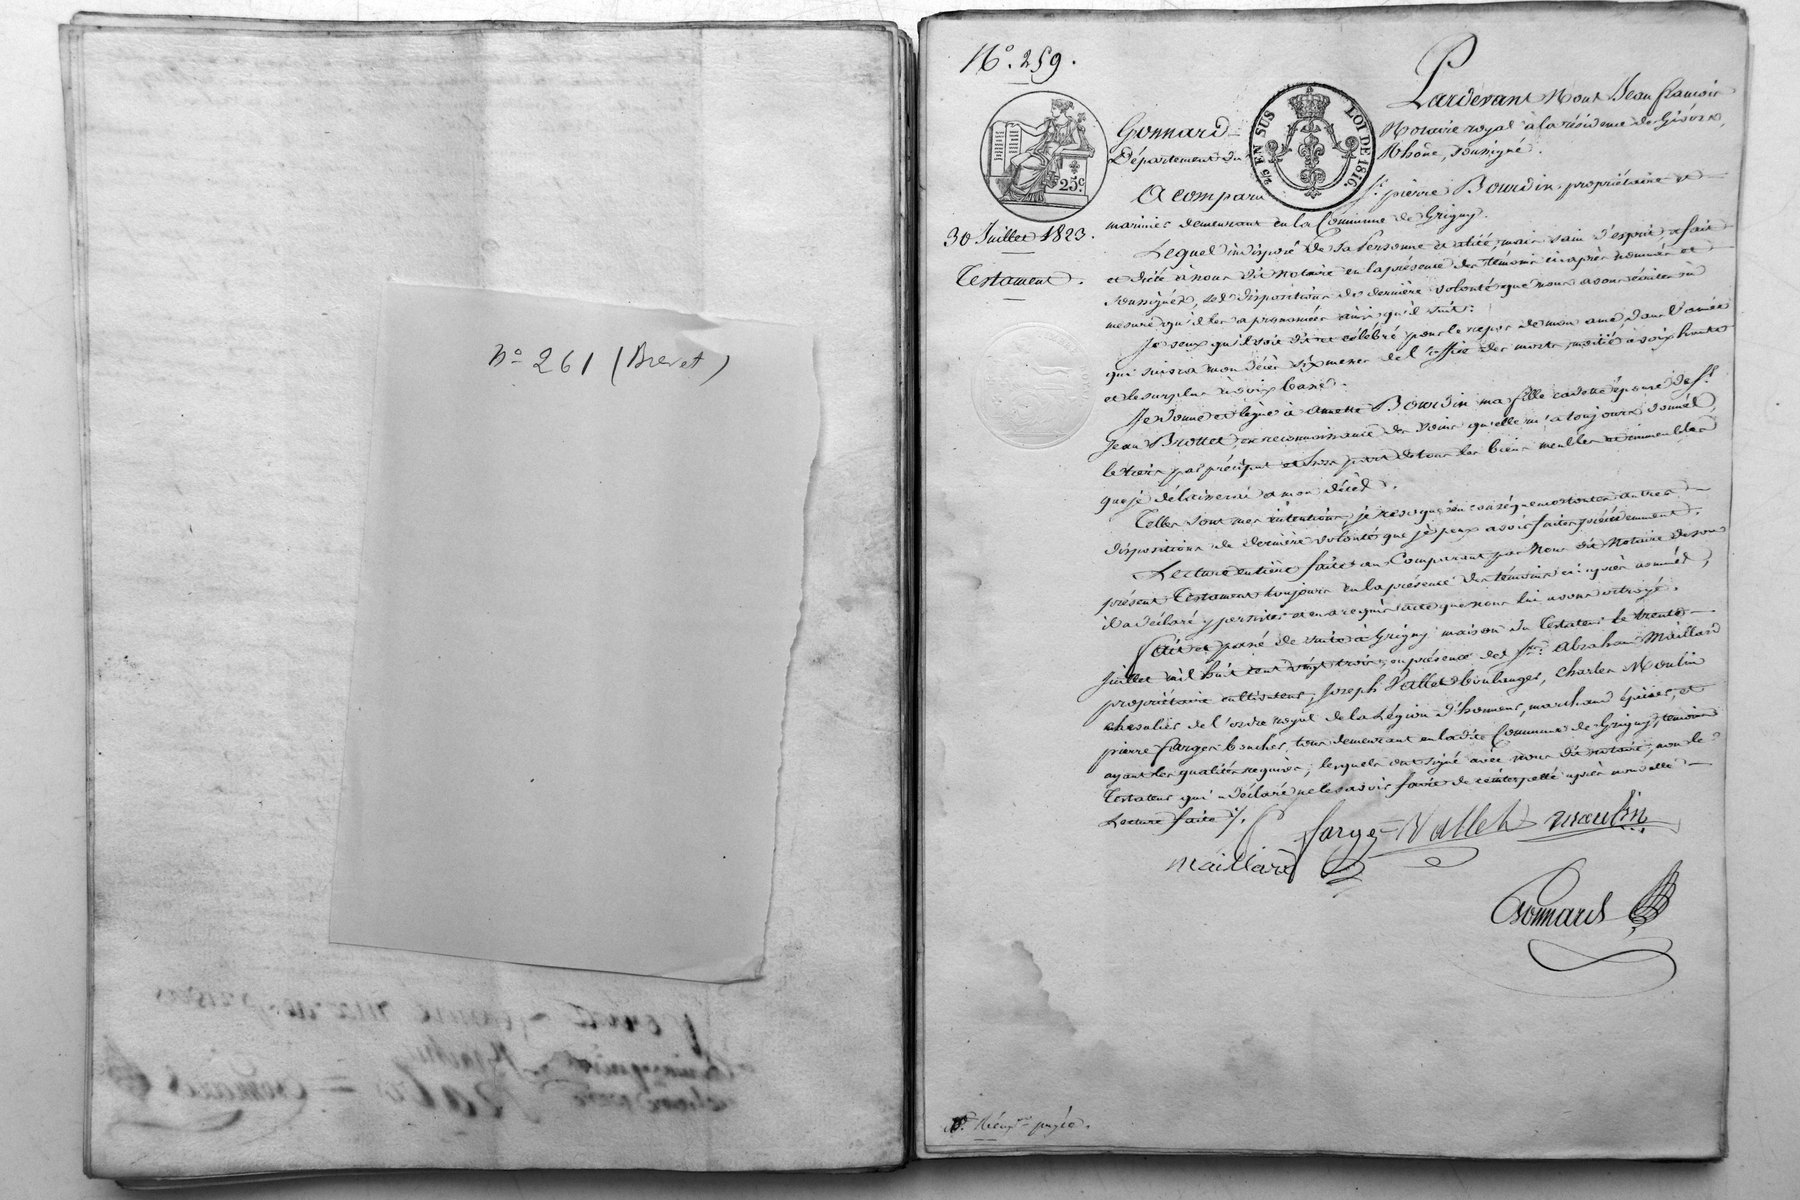 N° 261 (Brevet)
N°. 259.
25c
2/5 EN SUS LOI DE 1816.
30 Juillet 1823.
Testament.
Pardevant Nous Jean françois
Gonnard Notaire royal à la résidence de Givors,
Département du Rhône, soussigné.
A comparu Sr. pierre Bourdin propriétaire et
marinier demeurant en la Commune de Grigny.
Lequel indisposé de sa Personne et alité, mais sain d'esprit, a fait
et dicté à nous dit notaire en la présence des témoins ci après nommés et
soussignés, ses dispositions de dernière volonté que nous avons écrites au
mesure qu'il les a prononcées ainsi qu'il suit:
Je veux qu'il soit dit et célébré pour le repos de mon ame, dans l'année
qui suivra mon décès dix messes de l'office des morts, moitié à voix haute
et le surplus à voix basse.
Je donne et lègue à annette Bourdin ma fille cadette épouse de Sr.
Jean Brottet, en reconnaissance des soins qu'elle m'a toujours donnés,
le tiers par préciput et hors part de tous les biens meubles et immeubles
que je délaisserai à mon décès.
Telles sont mes intentions, je révoque en conséquence toutes autres
dispositions de dernière volonté que je peux avoir faites précédemment.
Lecture entière faite au Comparant par Nous dit Notaire de son
présent Testament toujours en la présence des témoins ci après nommés,
il a déclaré y persister et en a requis acte que nous lui avons octroyé.
Fait et passé de suite à Grigny maison du Testateur le trente
juillet mil huit cent vingt trois, en présence des Srs. abraham Maillard
propriétaire cultivateur, Joseph Vallet boulanger, Charles Moulin
chevalier de l'ordre royal de la Légion d'honneur, marchand épicier, et
pierre farges boucher, tous demeurant en ladite Commune de Grigny, témoins
ayant les qualités requises; lesquels ont signé avec nous dit notaire, non le
Testateur qui a déclaré ne le savoir faire de ce interpellé après nouvelle
Lecture faite ./.
farge Vallet moulin
maillard
Gonnard